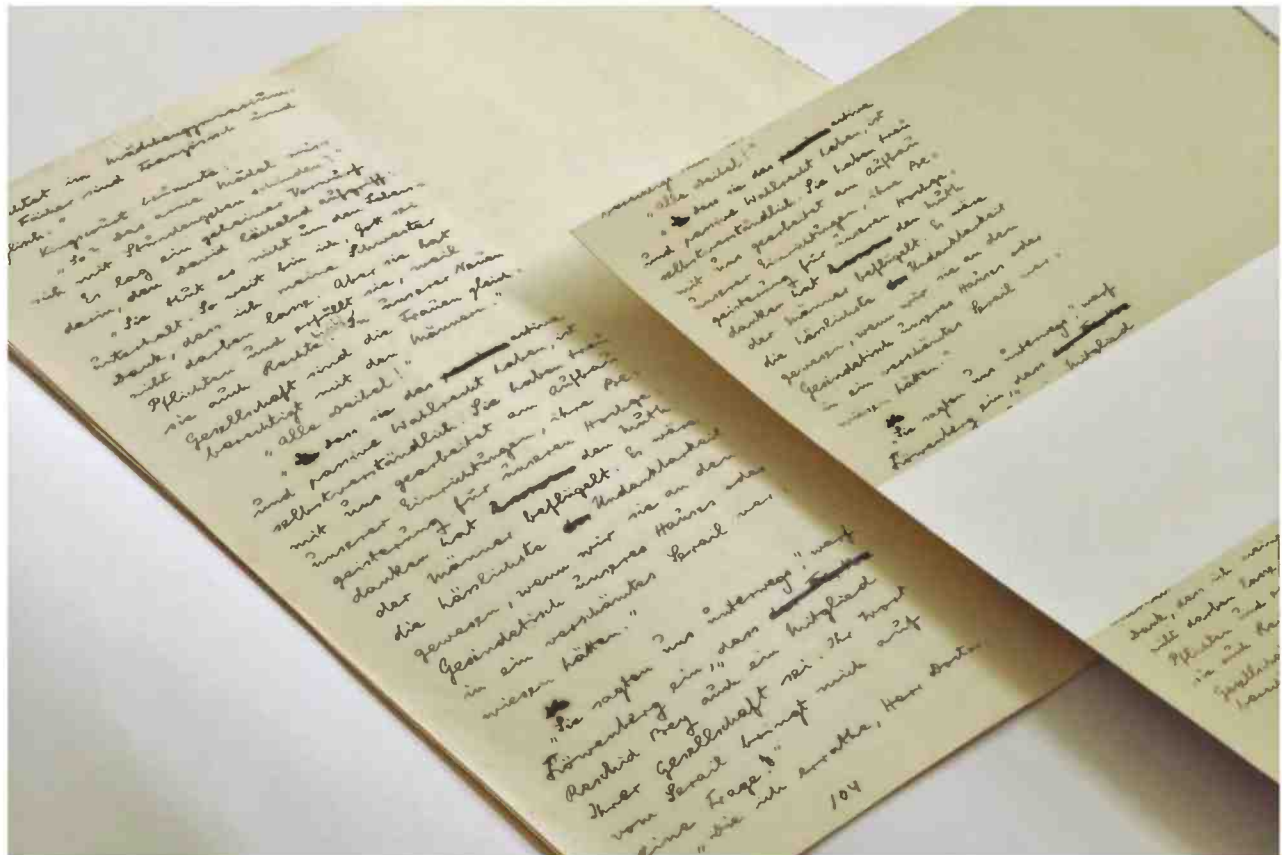 im Mädchengymnasium.
Fächer sind Französisch und
lisch."
Kingscourt brummte:
"So? das arme Mädel muss
sich mit Stundengeben schinden?"
Es lag ein geheimer Vorwurf
darin, den David lächelnd aufgriff.
"Sie thut es nicht um den Lebens-
unterhalt. So weit bin ich, Gott sei
Dank, dass ich meine Schwester
nicht darben lasse. Aber sie hat
Pflichten und erfüllt sie, weil
sie auch Rechte hat. In unserer Neuen
Gesellschaft sind die Frauen gleich-
berechtigt mit den Männern."
"Alle Weibel!"
" dass sie das active
und passive Wahlrecht haben, ist
selbstverständlich. Sie haben treu
mit uns gearbeitet am Aufbau
unserer Einrichtungen, ihre Be-
geisterung für unseren Hochge-
danken hat den Muth
der Männer beflügelt. Es wäre
die hässlichste Undankbarkeit
gewesen, wenn wir sie an den
Gesindetisch unseres Hauses oder
in ein verschämtes Serail ver-
wiesen hätten."
"Sie sagten uns unterwegs," warf
Löwenberg ein, "dass
Raschid Bey auch ein Mitglied
Ihrer Gesellschaft sei. Ihr Wort
vom Serail bringt mich auf
eine Frage!"
"Die ich errathe, Herr Doctor.
104
"Alle Weibel!"
" dass sie das active
und passive Wahlrecht haben, ist
selbstverständlich. Sie haben treu
mit uns gearbeitet am Aufbau
unserer Einrichtungen, ihre Be-
geisterung für unseren Hochge-
danken hat den Muth
der Männer beflügelt. Es wäre
die hässlichste Undankbarkeit
gewesen, wenn wir sie an den
Gesindetisch unseres Hauses oder
in ein verschämtes Serail ver-
wiesen hätten."
"Sie sagten uns unterwegs," warf
Löwenberg ein, "dass
Mitglied
Dank, dass ich meine
nicht darben lasse.
Pflichten und
sie auch
Gesellschaft